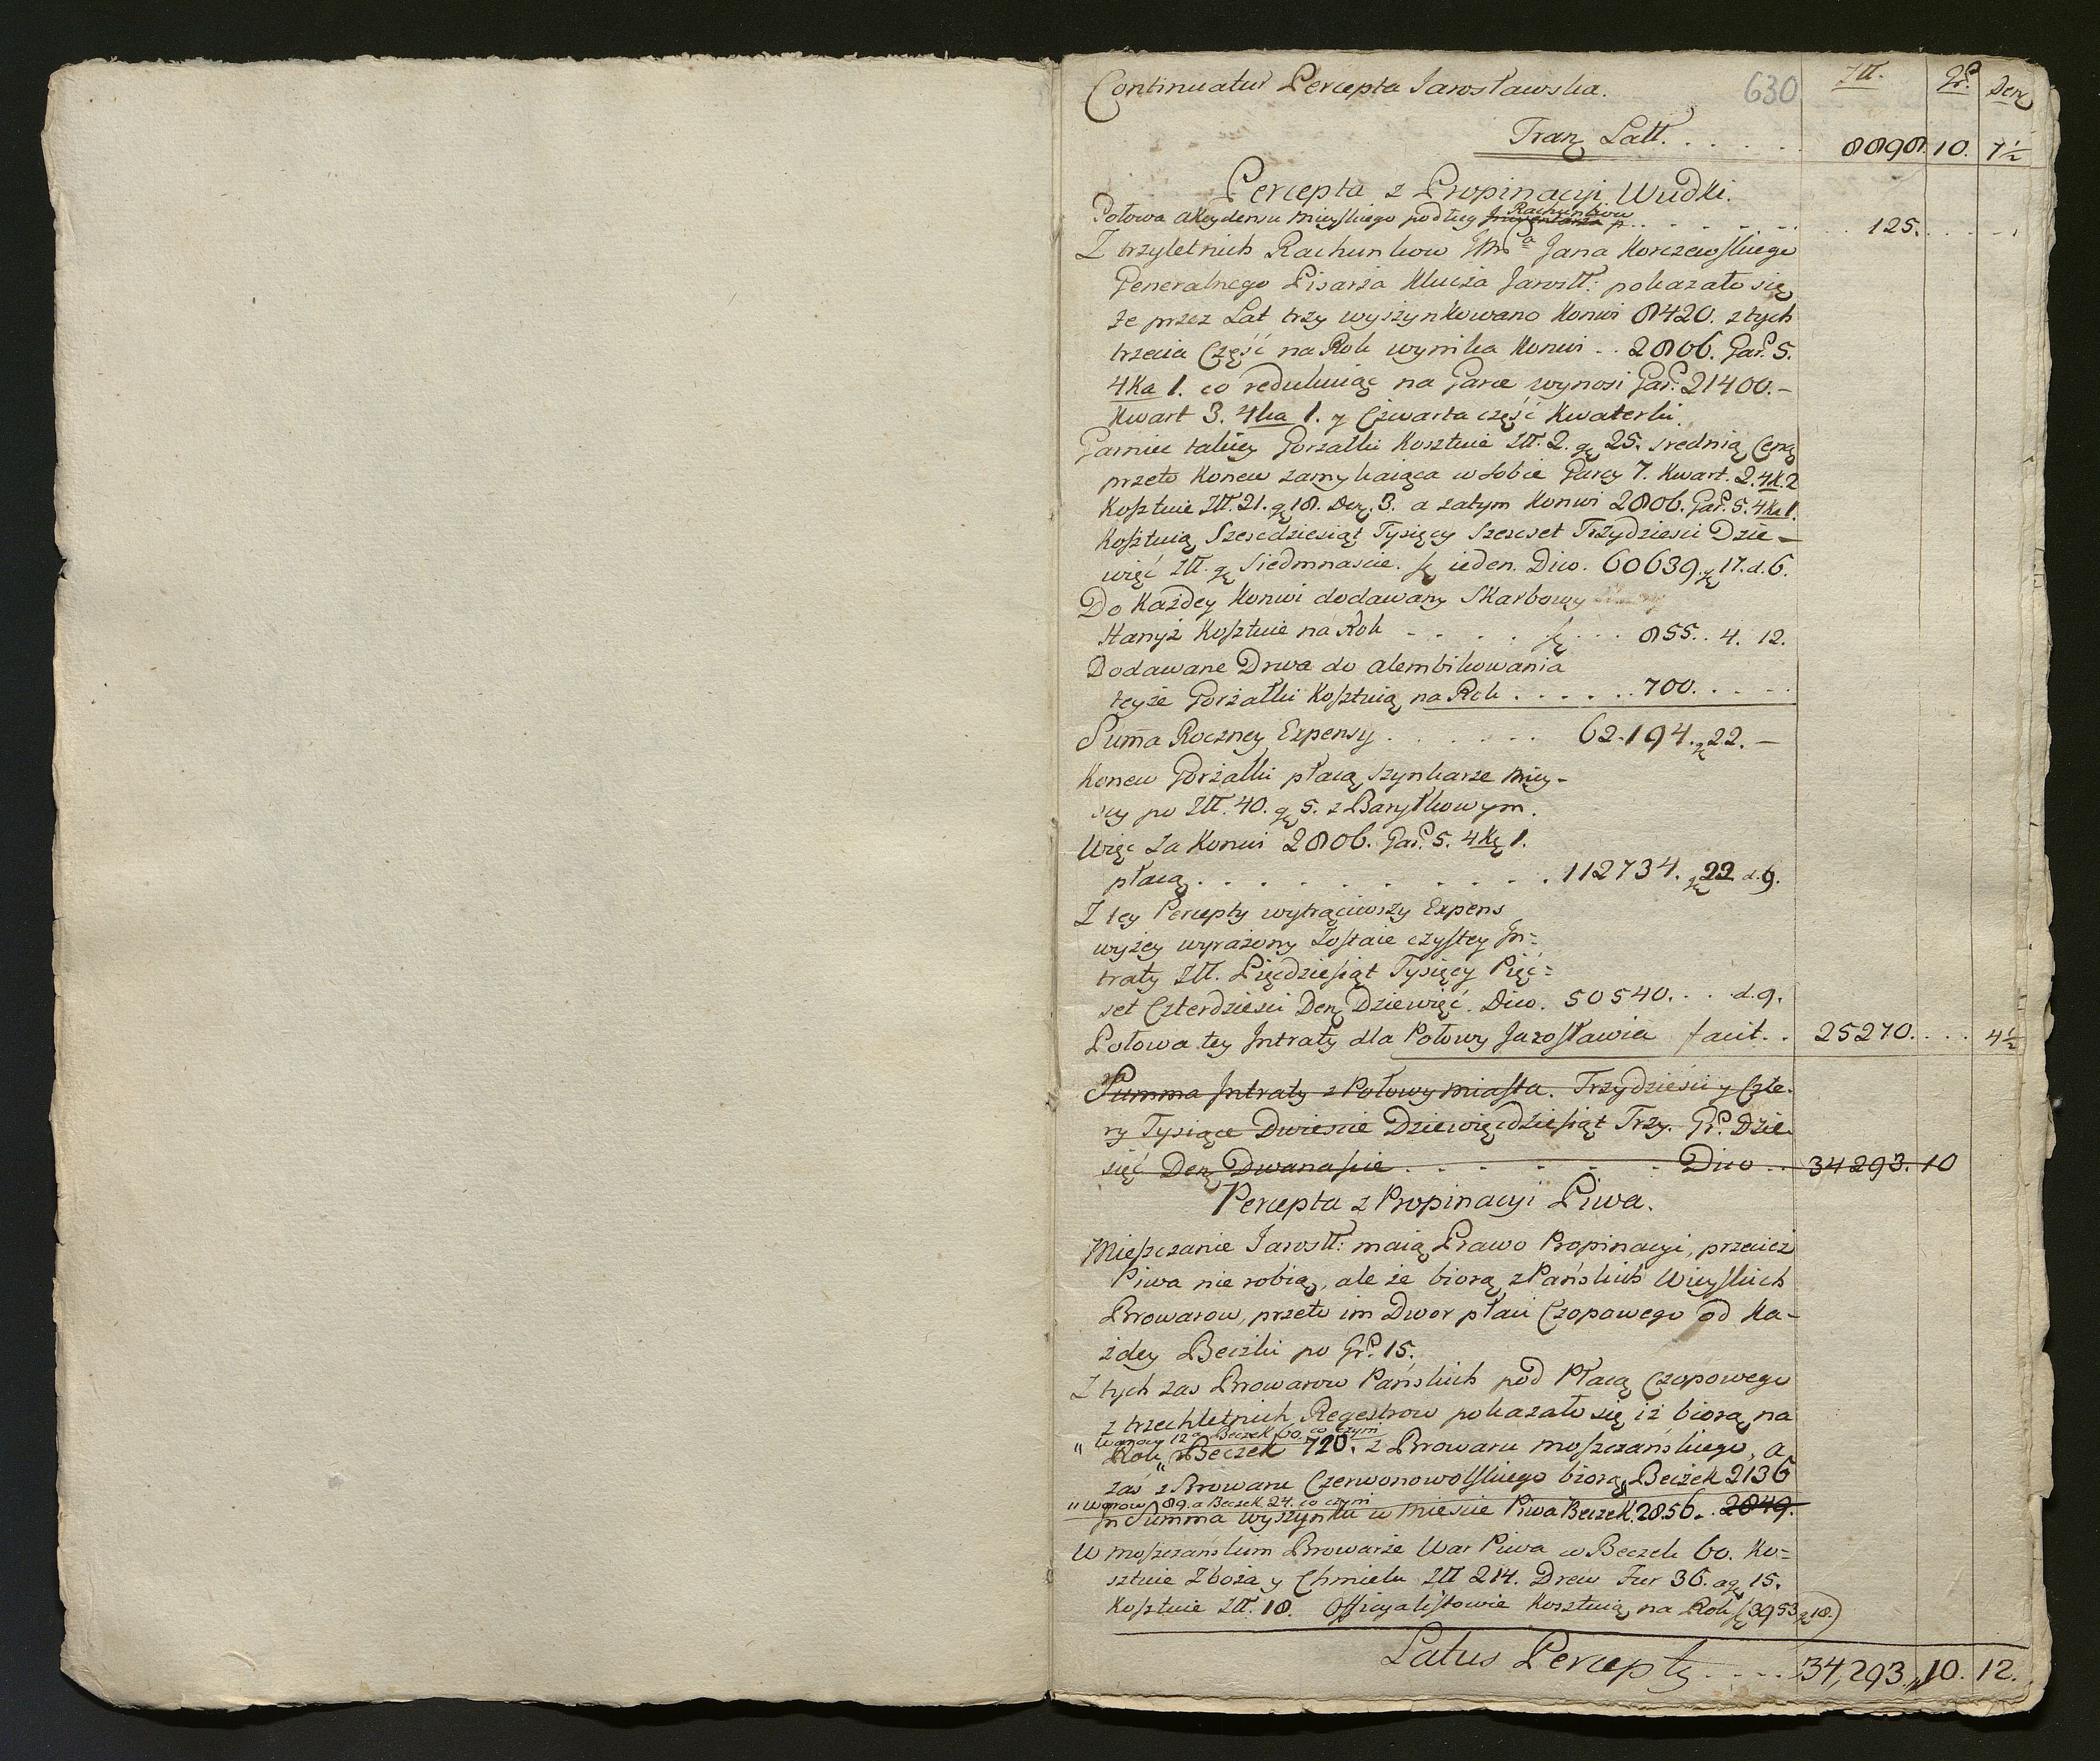 Continuatur Percepta Jarosławska. 630 Złł. Gr. Den
Tranz Latt. . . . . . 8898. 10. 7½
Percepta z Propinacyi Wudki.
Połowa akcydensu Mieyskiego podług Rachunkow . . . . . 125. . . .
Z trzyletnich Rachunkow Jana Korczewskiego
Generalnego Pisarza Klucza Jarosłł: pokazało się
że przez Lat trzy wyszynkowano Konwi 8420. z tych
trzecia Część na Rok wynika Konwi . . 2806. Gar. 5.
4ka 1. co redukuiąc na Garce wynosi Gar. 21400.–
Kwart 3. 4ka 1. y Czwarta część Kwaterki.
Garniec takiey Gorzałki Kosztuie Złł. 2. gr 25. srednią Ceną
przeto Konew zamykaiąca w sobie Garcy 7. Kwart. 2. 4k. 2
Kosztuie Złł. 21. gr 18. Den. 3. a zatym Konwi 2806. Gar. 5. 4ka 1.
Kosztuią Szescdziesiąt Tysięcy Szescset Trzydziesci Dzie–
więć Złł. gr Siedmnascie. sz ieden. Dico. 60639. gr 17. d. 6.
Do Każdey Konwi dodawany Skarbowy
Hanyż Kosztuie na Rok . . . . . 855. . 4. 12.
Dodawane Drwa do alembikowania
teyże Gorzałki Kosztuią na Rok . . . . . . 700. . . . .
Summa Roczney Expensy . . . . . . 62.194. gr 22. –
Konew Gorzałki płacą szynkarze Miey–
scy po Złł. 40. gr 5. z Baryłkowym.
Więc za Konwi 2806. Gar. 5. 4kę 1.
płacą . . . . . . . . . . 112734. gr 22 d. 9.
Z tey Percepty wytrąciwszy Expens
wyżey wyrażony Zostaie czystey In=
traty Złł. Pięcdziesiąt Tysięcy Pięć=
set Czterdziesci Den Dziewięć. Dico. 50540. . . d. 9.
Połowa tey Intraty dla Połowy Jarosławia facit. . 25270. . . . 4½
Summa Intraty z Połowy Miasta. Trzydziesci y Czte–
ry Tysiące Dwiescie Dziewięcdziesiąt Trzy. Gr. Dzie–
sięć Den Dwanascie . . . . . . Dico . . 34293. 10
Percepta z Propinacyi Piwa.
Mieszczanie Jarosłł: maią Prawo Propinacyi, przecież
Piwa nie robią, ale że biorą z Pańskich Wieyskich
Browarow, przeto im Dwor płaci Czopowego od Ka–
żdey Beczki po Gr. 15.
Z tych zas Browarow Pańskich pod Płacą Czopowego
z trzechletnich Regestrow pokazało się iż biorą na
" Warow 12 a Beczek 60. co czyni
Rok " Beczek 720. z Browaru Moszczańskiego, a
zaś z Browaru Czerwonowolskiego biorą " Beczek 2136
" Warow 89. a Beczek 24. co czyni
In Summa wyszynku w Miescie Piwa Beczek. 2856. . 2849.
W Moszczańskim Browarze War Piwa w Beczek 60. Ko=
sztuie Zboża y Chmielu Złł 214. Drew Fur 36. a gr 15.
Kosztuie Złł. 18. Officyalistowie Kosztuią na Rok (3953 gr 18.)
Latus Percepty . . . . 34,293 " 10. 12.